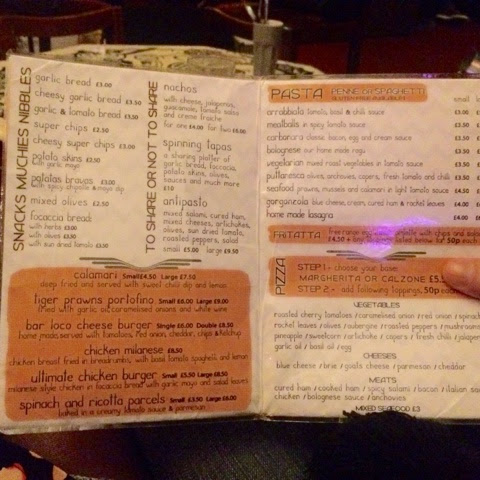 SNACKS MUCHIES NIBBLES
garlic bread £3.00
cheesy garlic bread £3.50
garlic & tomato bread £3.50
super chips £2.50
cheesy super chips £3.00
potato skins £2.50
with garlic mayo
patatas bravas £3.00
with spicy chipotle & mayo dip
mixed olives £2.50
focaccia bread:
with herbs £3.00
with olives £3.50
with sun dried tomato £3.50
TO SHARE OR NOT TO SHARE
nachos
with cheese, jalapenos,
guacamole, tomato salsa
and creme fraiche
for one £4.00 for two £6.00
spinning tapas
a sharing platter of
garlic bread, foccacia,
potato skins, olives,
sauces and much more
£10
antipasto
mixed salami, cured ham,
mixed cheeses, artichokes,
olives, sun dried tomato,
roasted peppers, salad
small £5.00 large £9.50
calamari Small £4.50 Large £7.50
deep fried and served with sweet chilli dip and lemon
tiger prawns portofino Small £6.00 Large £9.00
fried with garlic caramelised onions and white wine
bar loco cheese burger Single £6.00 Double £8.50
home made, served with tomatoes, red onion, cheddar, chips & ketchup
chicken mianese £8.50
chicken breast fried in breadcrumbs, with basil tomato spaghetti and lemon
ultimate chicken burger Small £5.50 Large £8.50
mianese style chicken in focaccia bread with garlic mayo and salad leaves
spinach and ricotta parcels Small £3.50 Large £6.00
baked in a creamy tomato sauce & parmesan
PASTA PENNE OR SPAGHETTI
GLUTEN FREE AVAILABLE
small
arrabbiata tomato, basil & chilli sauce £3.00
meatballs in spicy tomato sauce £3.50
carbonara cheese, bacon, egg and cream sauce £3.50
bolognese our home made ragu £3.50
vegetarian mixed roast vegetables in tomato sauce £3.50
puttanesca olives, anchovies, capers, fresh tomato and chilli £3.50
seafood prawns, mussels and calamari in light tomato sauce £4.50
gorgonzola blue cheese, cream, cured ham & rocket leaves £4.00
home made lasagna £4.00
FRITATTA free range egg omelette with chips and salad
£4.50 + toppings listed below for 50p each
PIZZA
STEP 1 - choose your base:
MARGHERITA OR CALZONE £5.
STEP 2 - add following toppings, 50p
VEGETABLES
roasted cherry tomatoes / caramelised onion / red onion / spinach
rocket leaves / olives / aubergine / roasted peppers / mushrooms
pineapple / sweetcorn / artichoke / capers / fresh chilli / jalapenos
garlic oil / basil oil / egg
CHEESES
blue cheese / brie / goats cheese / parmesan / cheddar
MEATS
cured ham / cooked ham / spicy salami / bacon / italian
chicken / bolognese sauce / anchovies
MIXED SEAFOOD £3